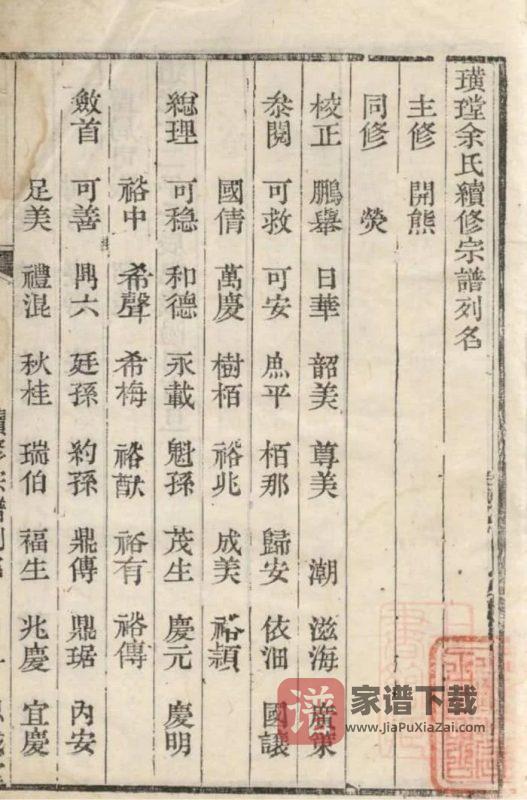 璜瑝余氏續修宗譜列名
主修 開熊
同修 熒
校正 鵬舉 日華 韶美 尊美 潮 滋海 廣業
叅閱 可救 可安 庶平 栢那 歸安 依沺 國讓
國倩 萬慶 樹栢 裕兆 成美 裕頴
緫理 可稳 和德 永載 魁孫 茂生 慶元 慶明
裕中 希聲 希梅 裕猷 裕有 裕傳
斂首 可善 興六 廷孫 約孫 鼎傳 鼎琚 內安
足美 禮混 秋桂 瑞伯 福生 兆慶 宜慶
譜
家谱下载
www.JiaPuXiaZai.com